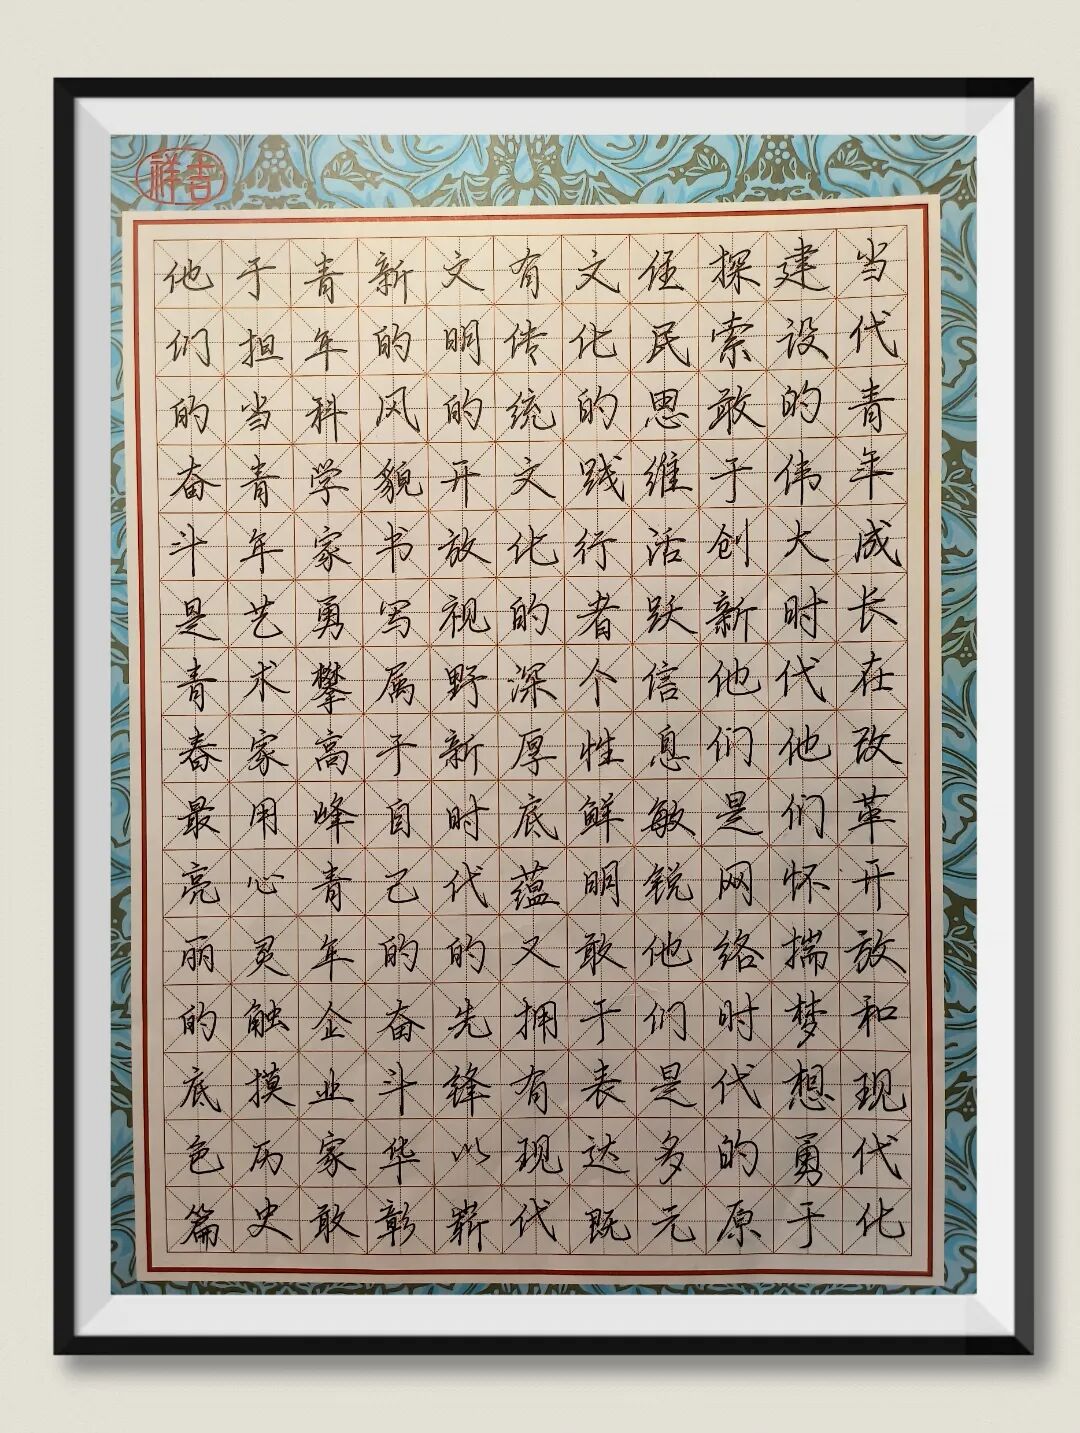 吉祥
当代青年成长在改革开放和现代化
建设的伟大时代他们怀揣梦想勇于
探索敢于创新他们是网络时代的原
住民思维活跃信息敏锐他们是多元
文化的践行者个性鲜明敢于表达既
有传统文化的深厚底蕴又拥有现代
文明的开放视野新时代的先锋以崭
新的风貌书写属于自己的奋斗华彰
青年科学家勇攀高峰青年企业家敢
于担当青年艺术家用心灵触摸历史
他们的奋斗是青春最亮丽的底色篇